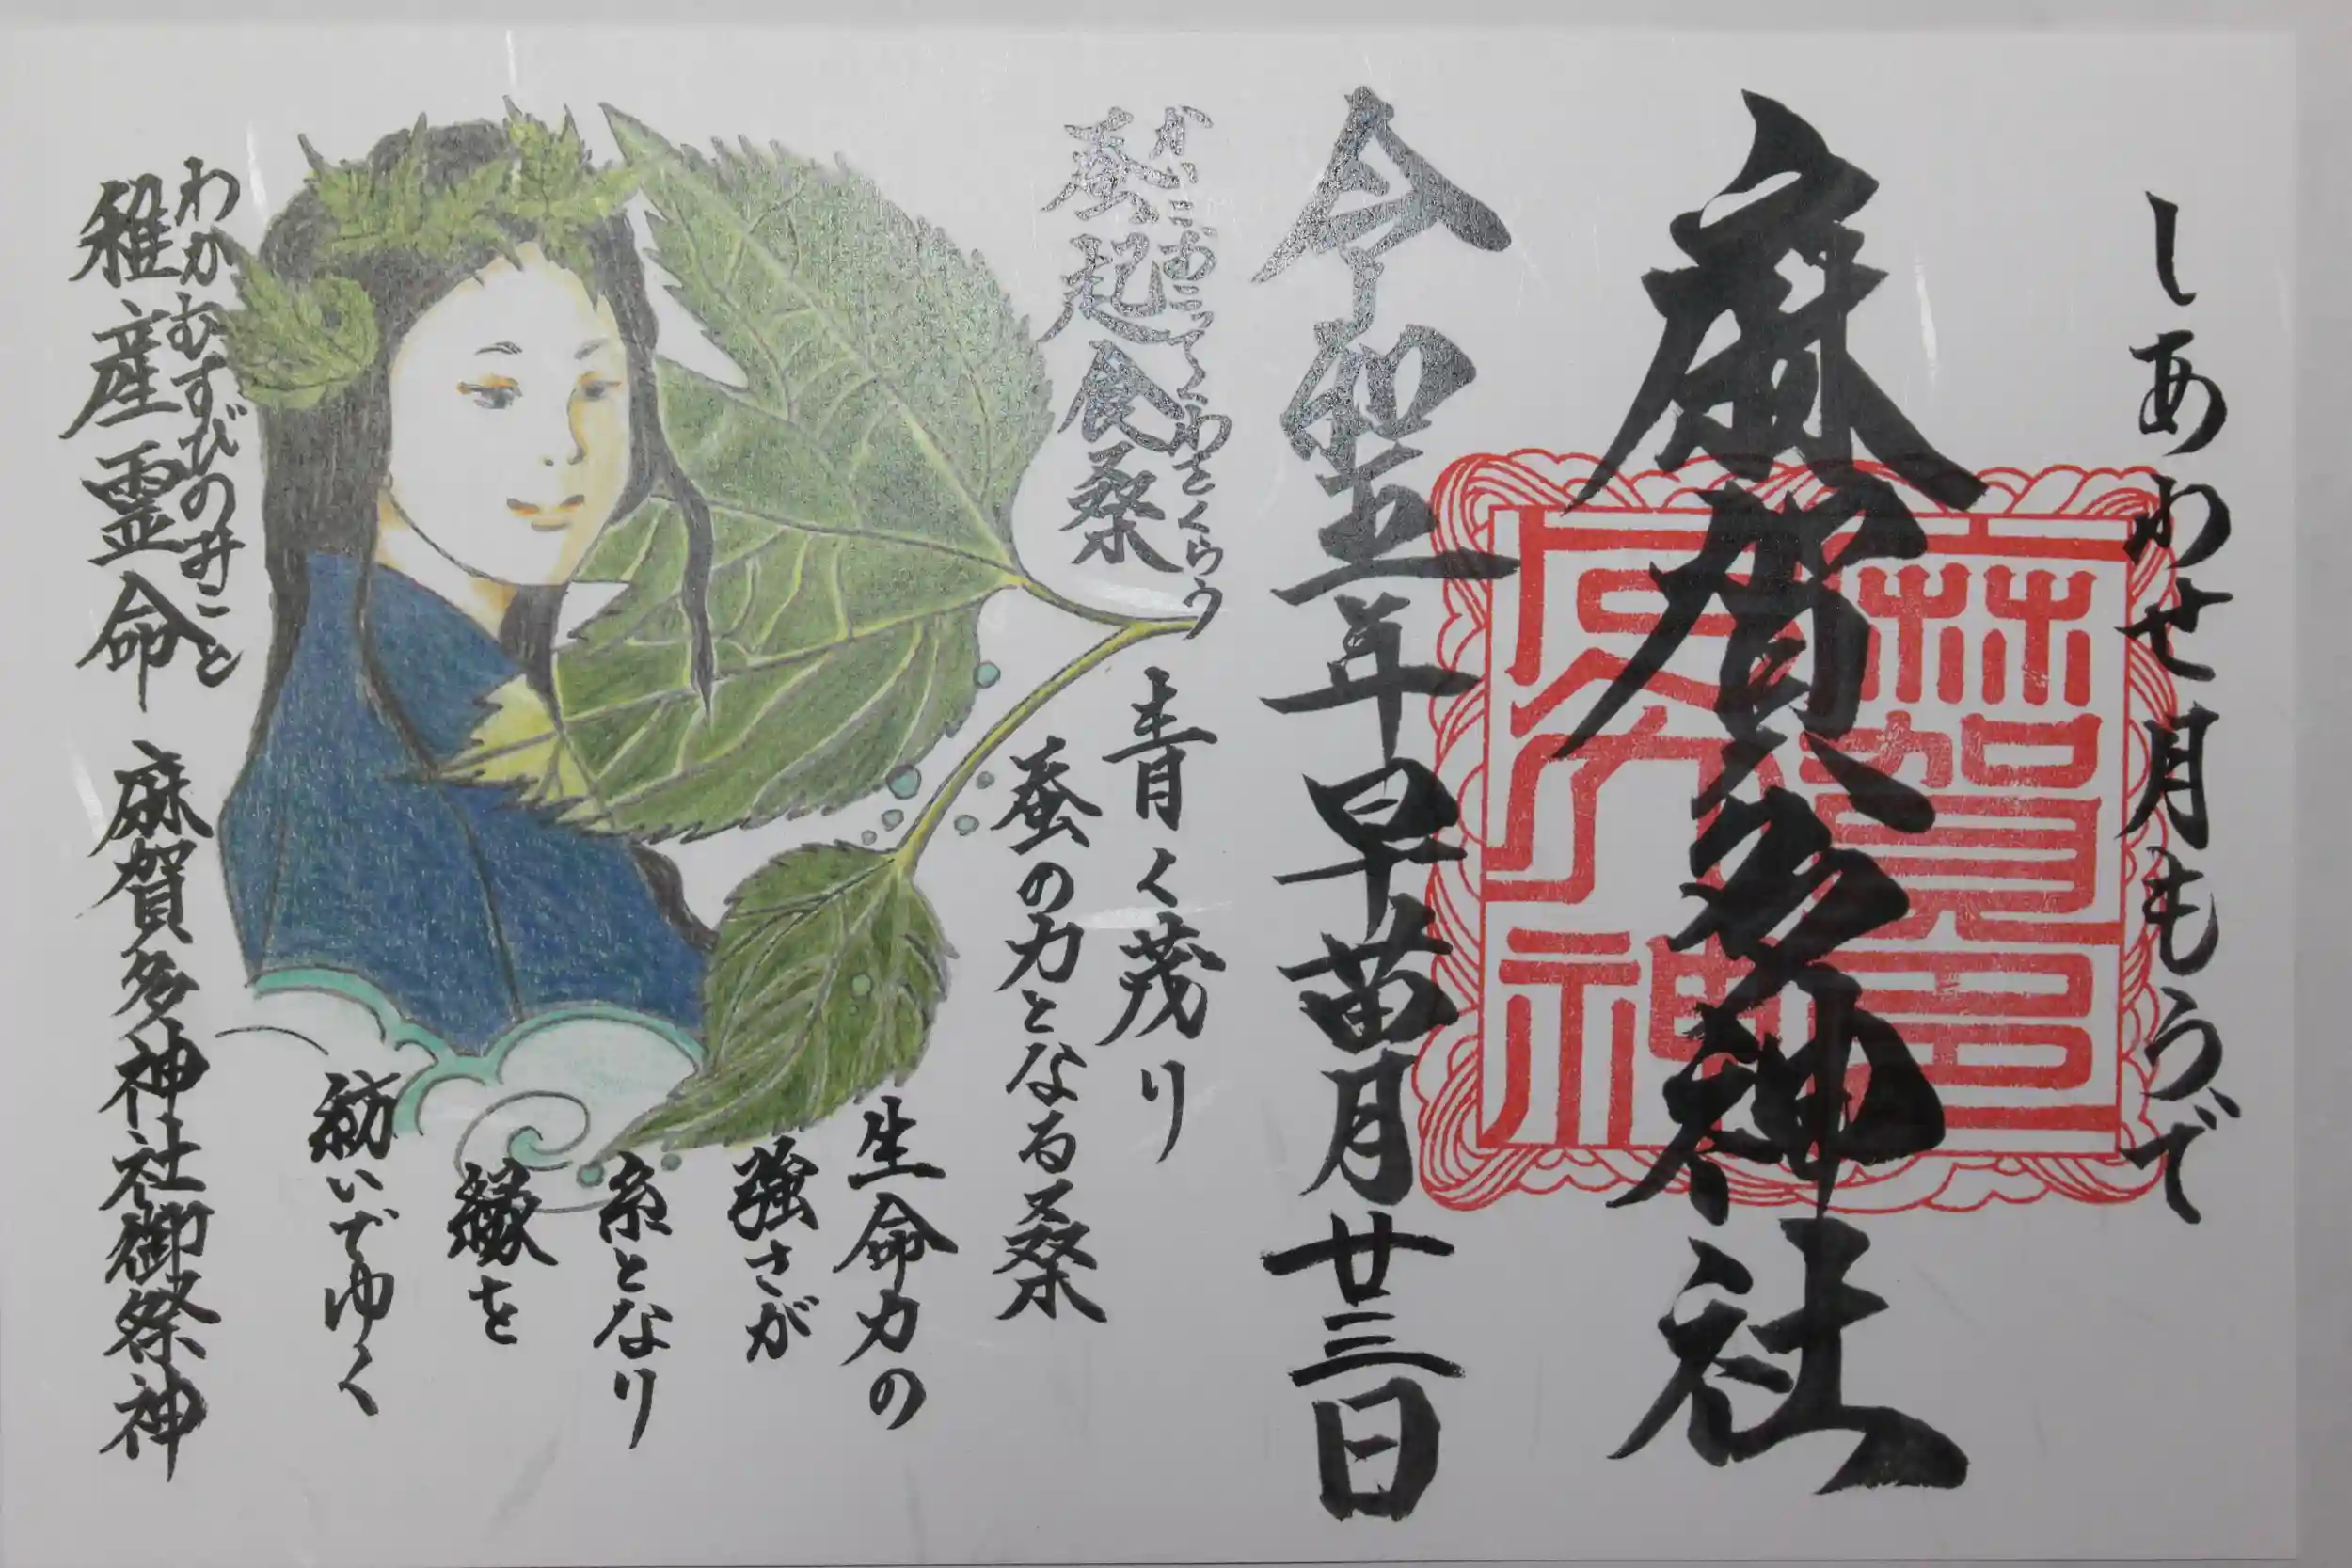 しあわせ月もうで
麻賀多神社
麻賀多神
令和五年早苗月廿三日
かいこおこってくわをくらう
蚕起食桑
青く茂り
蚕の力となる桑
生命力の
強さが
糸となり
縁を
紡いでゆく
わかむすびのみこと
稚産霊命
麻賀多神社御祭神